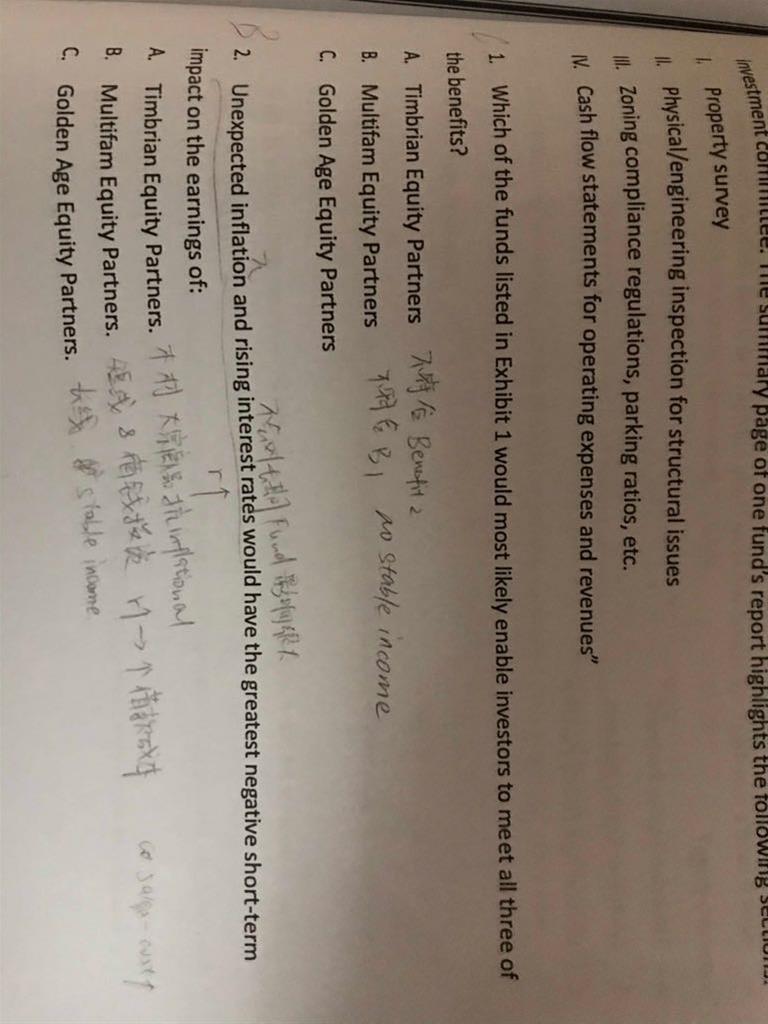 investment committee. The summary page of one fund's report highlights the following sections:
I. Property survey
II. Physical/engineering inspection for structural issues
III. Zoning compliance regulations, parking ratios, etc.
IV. Cash flow statements for operating expenses and revenues”
1. Which of the funds listed in Exhibit 1 would most likely enable investors to meet all three of
the benefits?
A. Timbrian Equity Partners 不符合 Benefit 2
B. Multifam Equity Partners 不符合 B1 no stable income
C. Golden Age Equity Partners
Fund
B 2. Unexpected inflation and rising interest rates would have the greatest negative short-term
r↑
impact on the earnings of:
A. Timbrian Equity Partners. inflational
B. Multifam Equity Partners. & r↑ → ↑
C. Golden Age Equity Partners. stable income